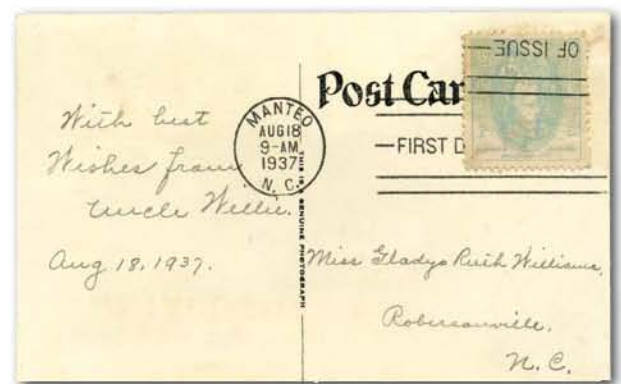 With best
Wishes from
Uncle Willie.
Aug 18, 1937.
MANTEO
AUG 18
9-AM
1937
N. C.
THIS IS A GENUINE PHOTOGRAPH
Post Car
OF ISSUE
FIRST D
Miss Gladys Ruth Williams,
Robersonville,
N. C.